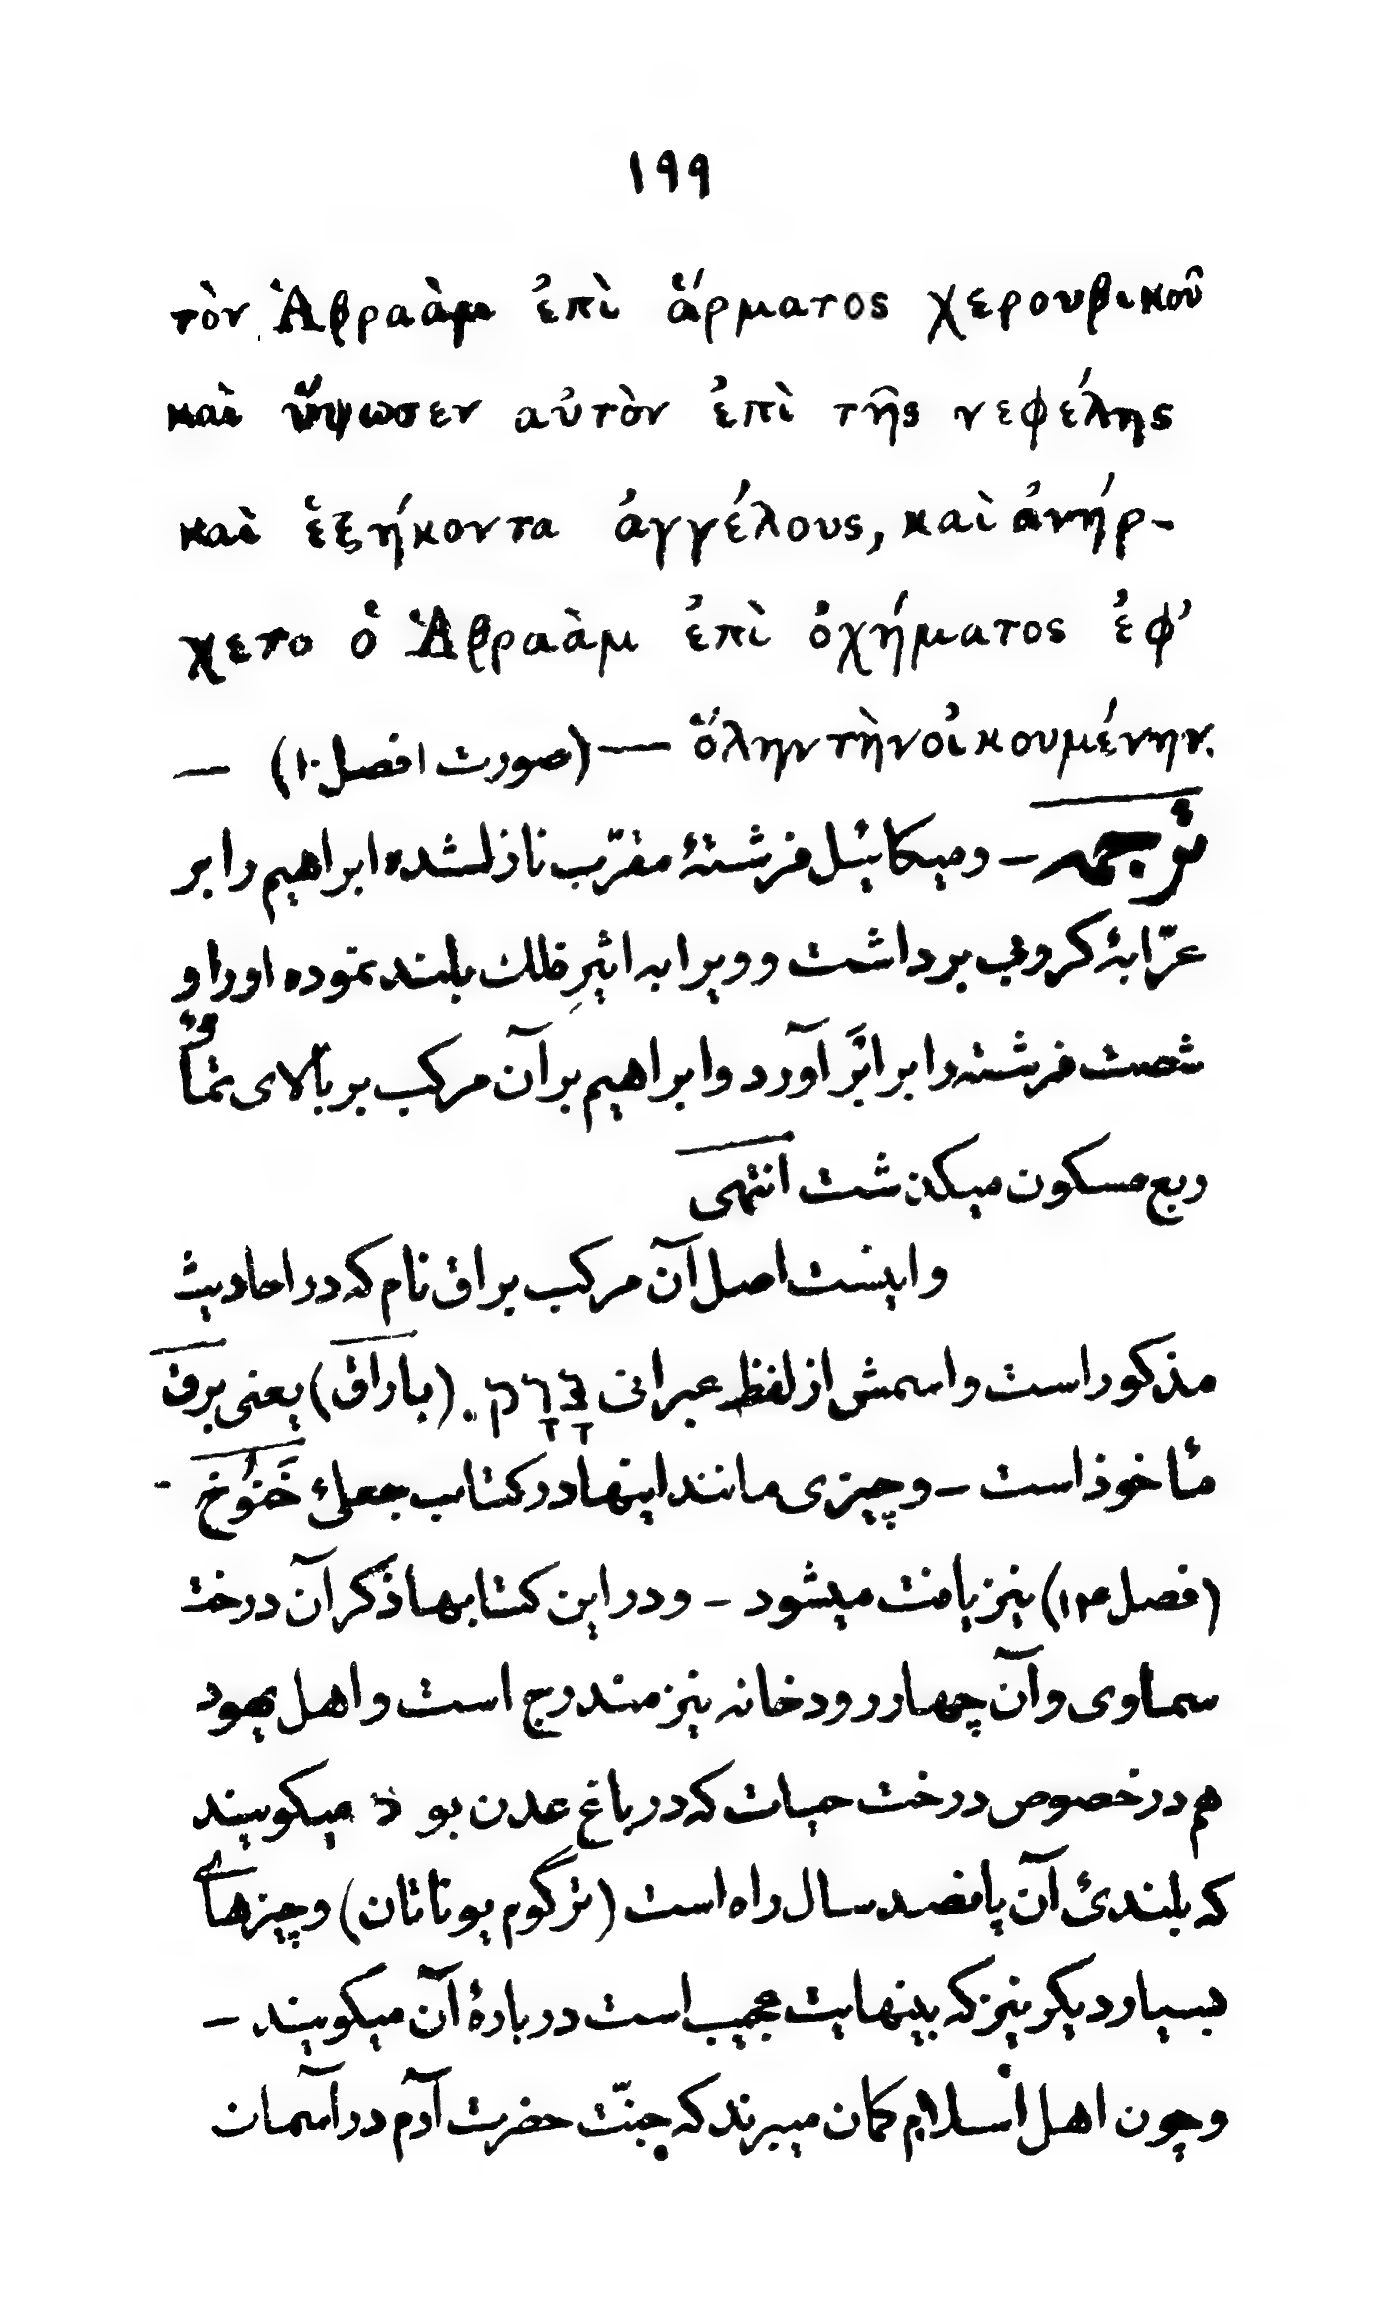 ۱۹۹
τὸν Ἀβραὰμ ἐπὶ ἅρματος χερουβικοῦ
καὶ ὕψωσεν αὐτὸν ἐπὶ τῆς νεφέλης
καὶ ἑξήκοντα ἀγγέλους, καὶ ἀνήρ-
χετο ὁ Ἀβραὰμ ἐπὶ ὀχήματος ἐφ’
ὅλην τὴν οἰκουμένην. — (صورت ا فصل ۱۰) —
ترجمه — و میکائیل فرشتهٔ مقرّب نازل شده ابراهیم را بر
عرّابهٔ کروبی برداشت و ویرا به اثیرِ فلك بلند نموده او را و
شصت فرشته را برابَر آورد و ابراهیم بر آن مرکب بر بالای تمامی
ربع مسکون میکذشت انتهی
و اینست اصل آن مرکب براق نام که در احادیث
مذکور است و اسمش از لفظ عبرانی בָּרָק. (باراق) یعنی برق
مأخوذ است — و چیزی مانند اینها در کتاب جعلئ خَنوُخ -
(فصل ۱۴) نیز یافت میشود — و در این کتابها ذکر آن درخت
سماوی و آن چهار رودخانه نیز مندرج است و اهل یهود
هم در خصوص درخت حیات که در باغ عدن بود میکویند
که بلندئ آن پانصد سال راه است (ترگوم یوناثان) و چیزهای
بسیار دیکر نیز که بینهایت عجیب است دربارهٔ آن میکویند —
و چون اهل اسلام کمان میبرند که جنّت حضرت آدم در آسمان